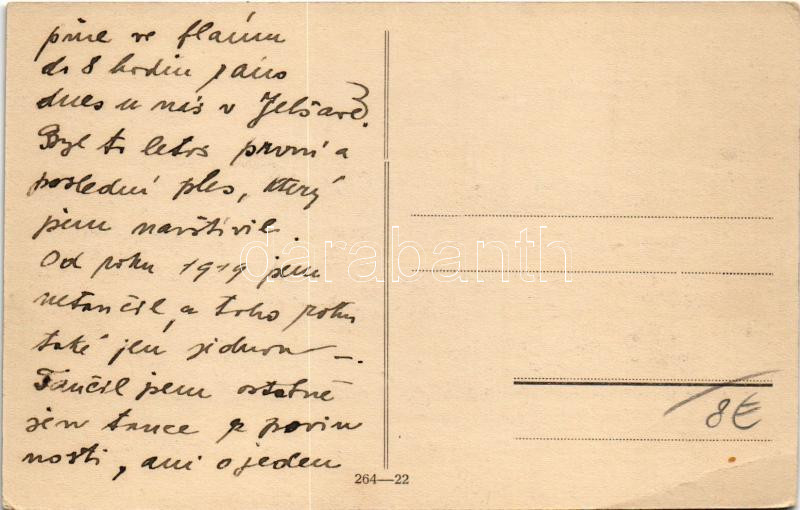 jsme ve flámu
do 8 hodin ráno
dnes u nás v Jelšavě.
Byl to letos první a
poslední ples, který
jsem navštívil.
Od roku 1919 jsem
netančil, a toho roku
také jen jednou —.
Tančil jsem ostatně
jen tance z povin
nosti, ani o jeden
264—22
8€
darabanth